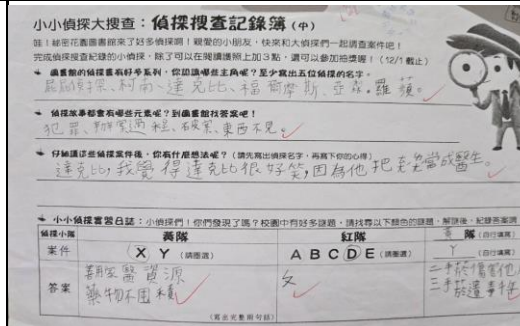 小小偵探大搜查：偵探搜查記錄簿（中）
哇！祕密花園圖書館來了好多偵探啊！親愛的小朋友，快來和大偵探們一起調查案件吧！
完成偵探搜查紀錄的小偵探，除了可以在閱讀護照上加3點，還可以參加抽獎喔！（12/1截止）
圖書館的偵探書有好多系列，你認識哪些主角呢？至少寫出五位偵探的名字。
屁屁偵探、柯南、達克比、福爾摩斯、亞森．羅蘋。
偵探故事都會有哪些元素呢？到圖書館找答案吧！
犯罪、辦案過程、破案、東西不見。
仔細讀這些偵探案件後，你有什麼想法呢？（請先寫出偵探名字，再寫下你的心得）
達克比，我覺得達克比很好笑，因為他把 當成醫生。
小小偵探實習日誌：小偵探們！你們發現了嗎？校園中有好多謎題，請找尋以下顏色的謎題，解謎後，紀錄答案
偵探小隊 黃隊 紅隊 隊（自行填寫）
案件 X Y（請圈選） A B C D E（請圈選） Y（自行填寫）
答案 醫資源 二手菸傷害他
藥物不囤積 三手菸遺
（寫出完整兩句話）